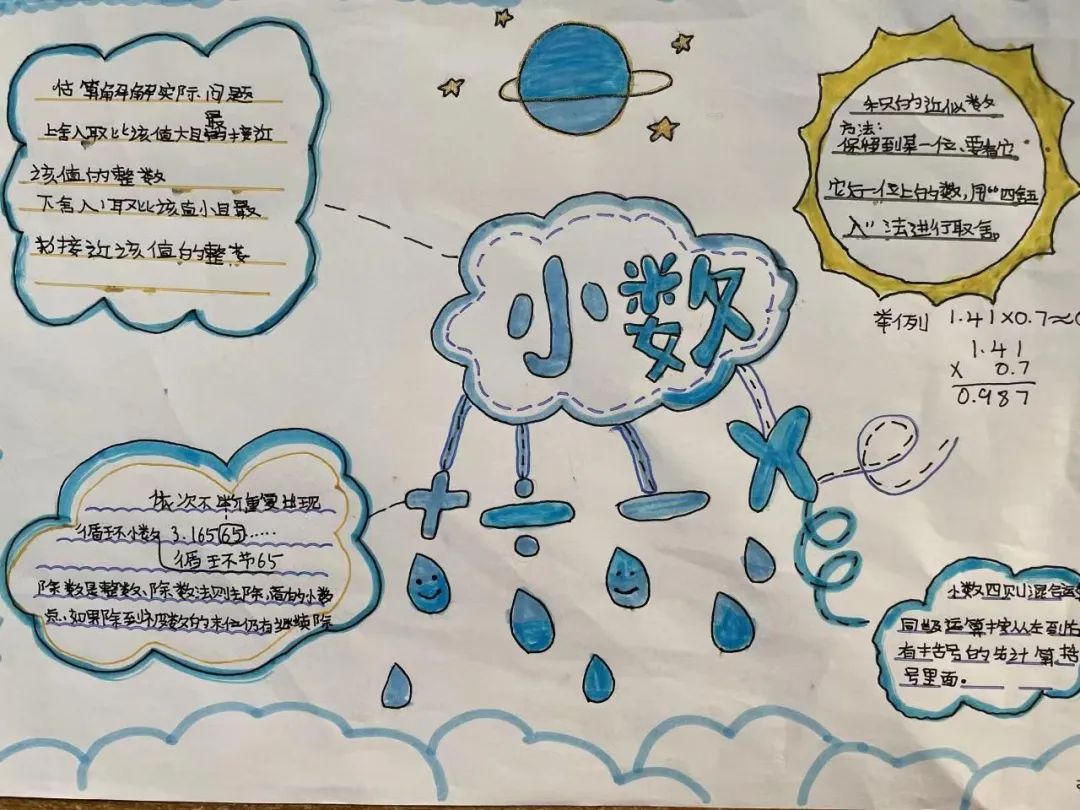 估算解解实际问题
上舍入取比该值大且最接近
该值的整数
下舍入取比该值小且最
接近该值的整
积的近似数
方法:
保留到某一位、要看它
它后一位上的数,用“四舍五
入”法进行取舍。
举例 1.41×0.7≈
1.41
× 0.7
0.987
小数
+ ÷ − ×
依次不断重复出现
循环小数 3.16565……
循环节65
除数是整数、除数法则去除,
点.如果除到被除数的末位仍有继续除
小数四则混合运
同级运算按从左到右
有括号的先计算括
号里面。